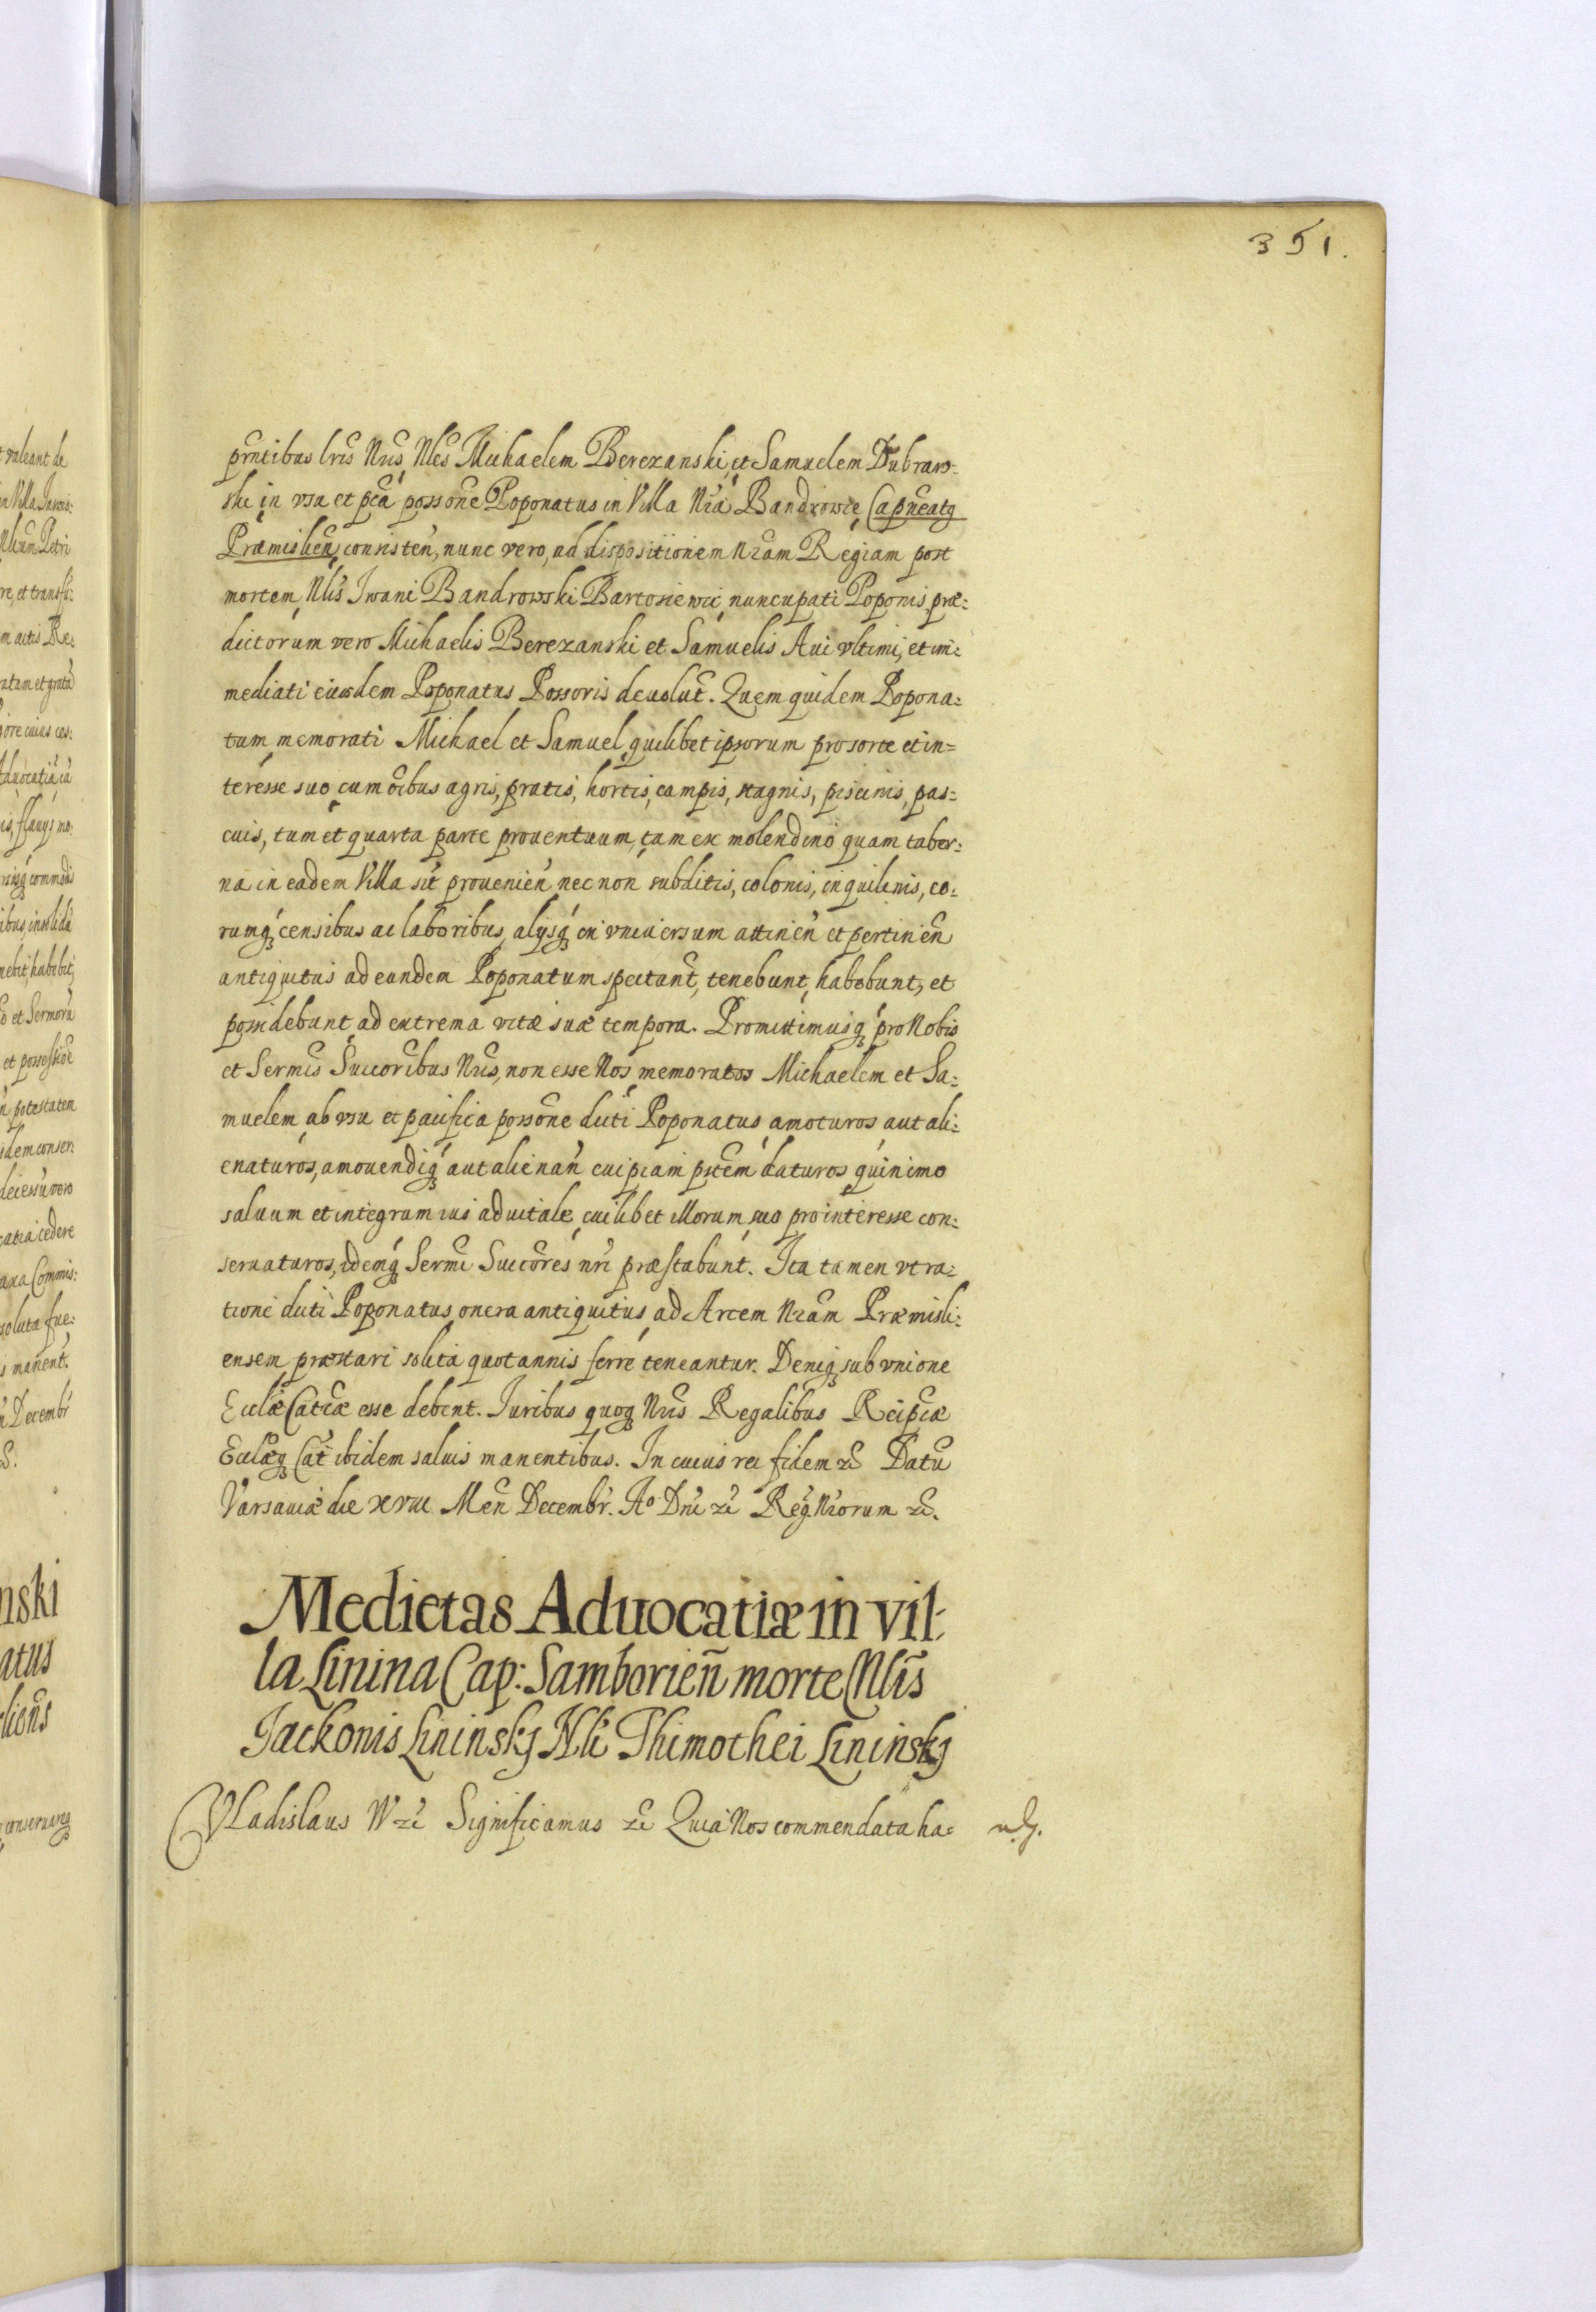 351.
pñtibus lris Nris, Nles Michaelem Berezanski, et Samuelem Dubraws-
ski in vsu et pca possone Poponatus in Villa Nra Bandrowie Capneatq
Præmislien consisten, nunc vero, ad dispositionem Nram Regiam post
mortem Nlis Iwani Bandrowski Bartosiewic nuncupati Poponis, præ-
dictorum vero Michaelis Berezanski et Samuelis Aui vltimi, et im-
mediati eiusdem Poponatus Possoris deuolut. Quem quidem Popona-
tum memorati Michael et Samuel quilibet ipsorum pro sorte et in-
teresse suo, cum oibus agris, pratis, hortis, campis, stagnis, piscinis, pas-
cuis, tum et quarta parte prouentuum, tam ex molendino quam taber-
na in eadem Villa sit prouenien nec non subditis, colonis, inquilinis, eo-
rumq censibus ac laboribus, alijsq in vniuersum attinen et pertinen
antiquitus ad eundem Poponatum spectant, tenebunt, habebunt, et
possidebunt ad extrema vitæ suæ tempora. Promittimusq pro Nobis
et Sermis Succoribus Nris, non esse Nos memoratos Michaelem et Sa-
muelem ab vsu et pacifica possone dicti Poponatus amoturos aut ali-
enaturos, amouendiq aut alienan cuipiam ptem daturos, quinimo
saluum et integrum ius aduitale cuilibet illorum suo pro interesse con-
seruaturos, idemq Sermi Succores nri præstabunt. Ita tamen vt ra-
tione dicti Poponatus onera antiquitus ad Arcem Nram Præmisli-
ensem præstari solita quotannis ferre teneantur. Deniq sub vnione
Ecclæ Catcæ esse debent. Iuribus quoq Nris Regalibus Reipcæ
Ecclæq Cat ibidem saluis manentibus. In cuius rei fidem zc Datu
Varsauiæ die xviii Men Decembr. Ao Dni zc Reg. Nrorum zc.
Medietas Aduocatiæ in vil-
la Linina Cap: Samborien morte Nlis
Iackonis Lininskj Nli Thimothei Lininskj
Vladislaus IV zc Significamus zc Quia Nos commendata ha-